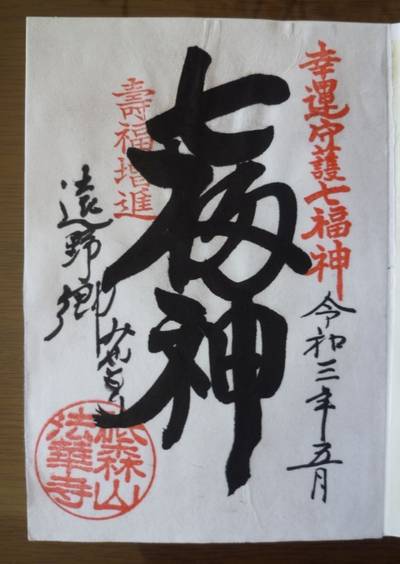 幸運守護七福神
令和三年五月
七福神
壽福増進
遠野郷みやもり
法華寺